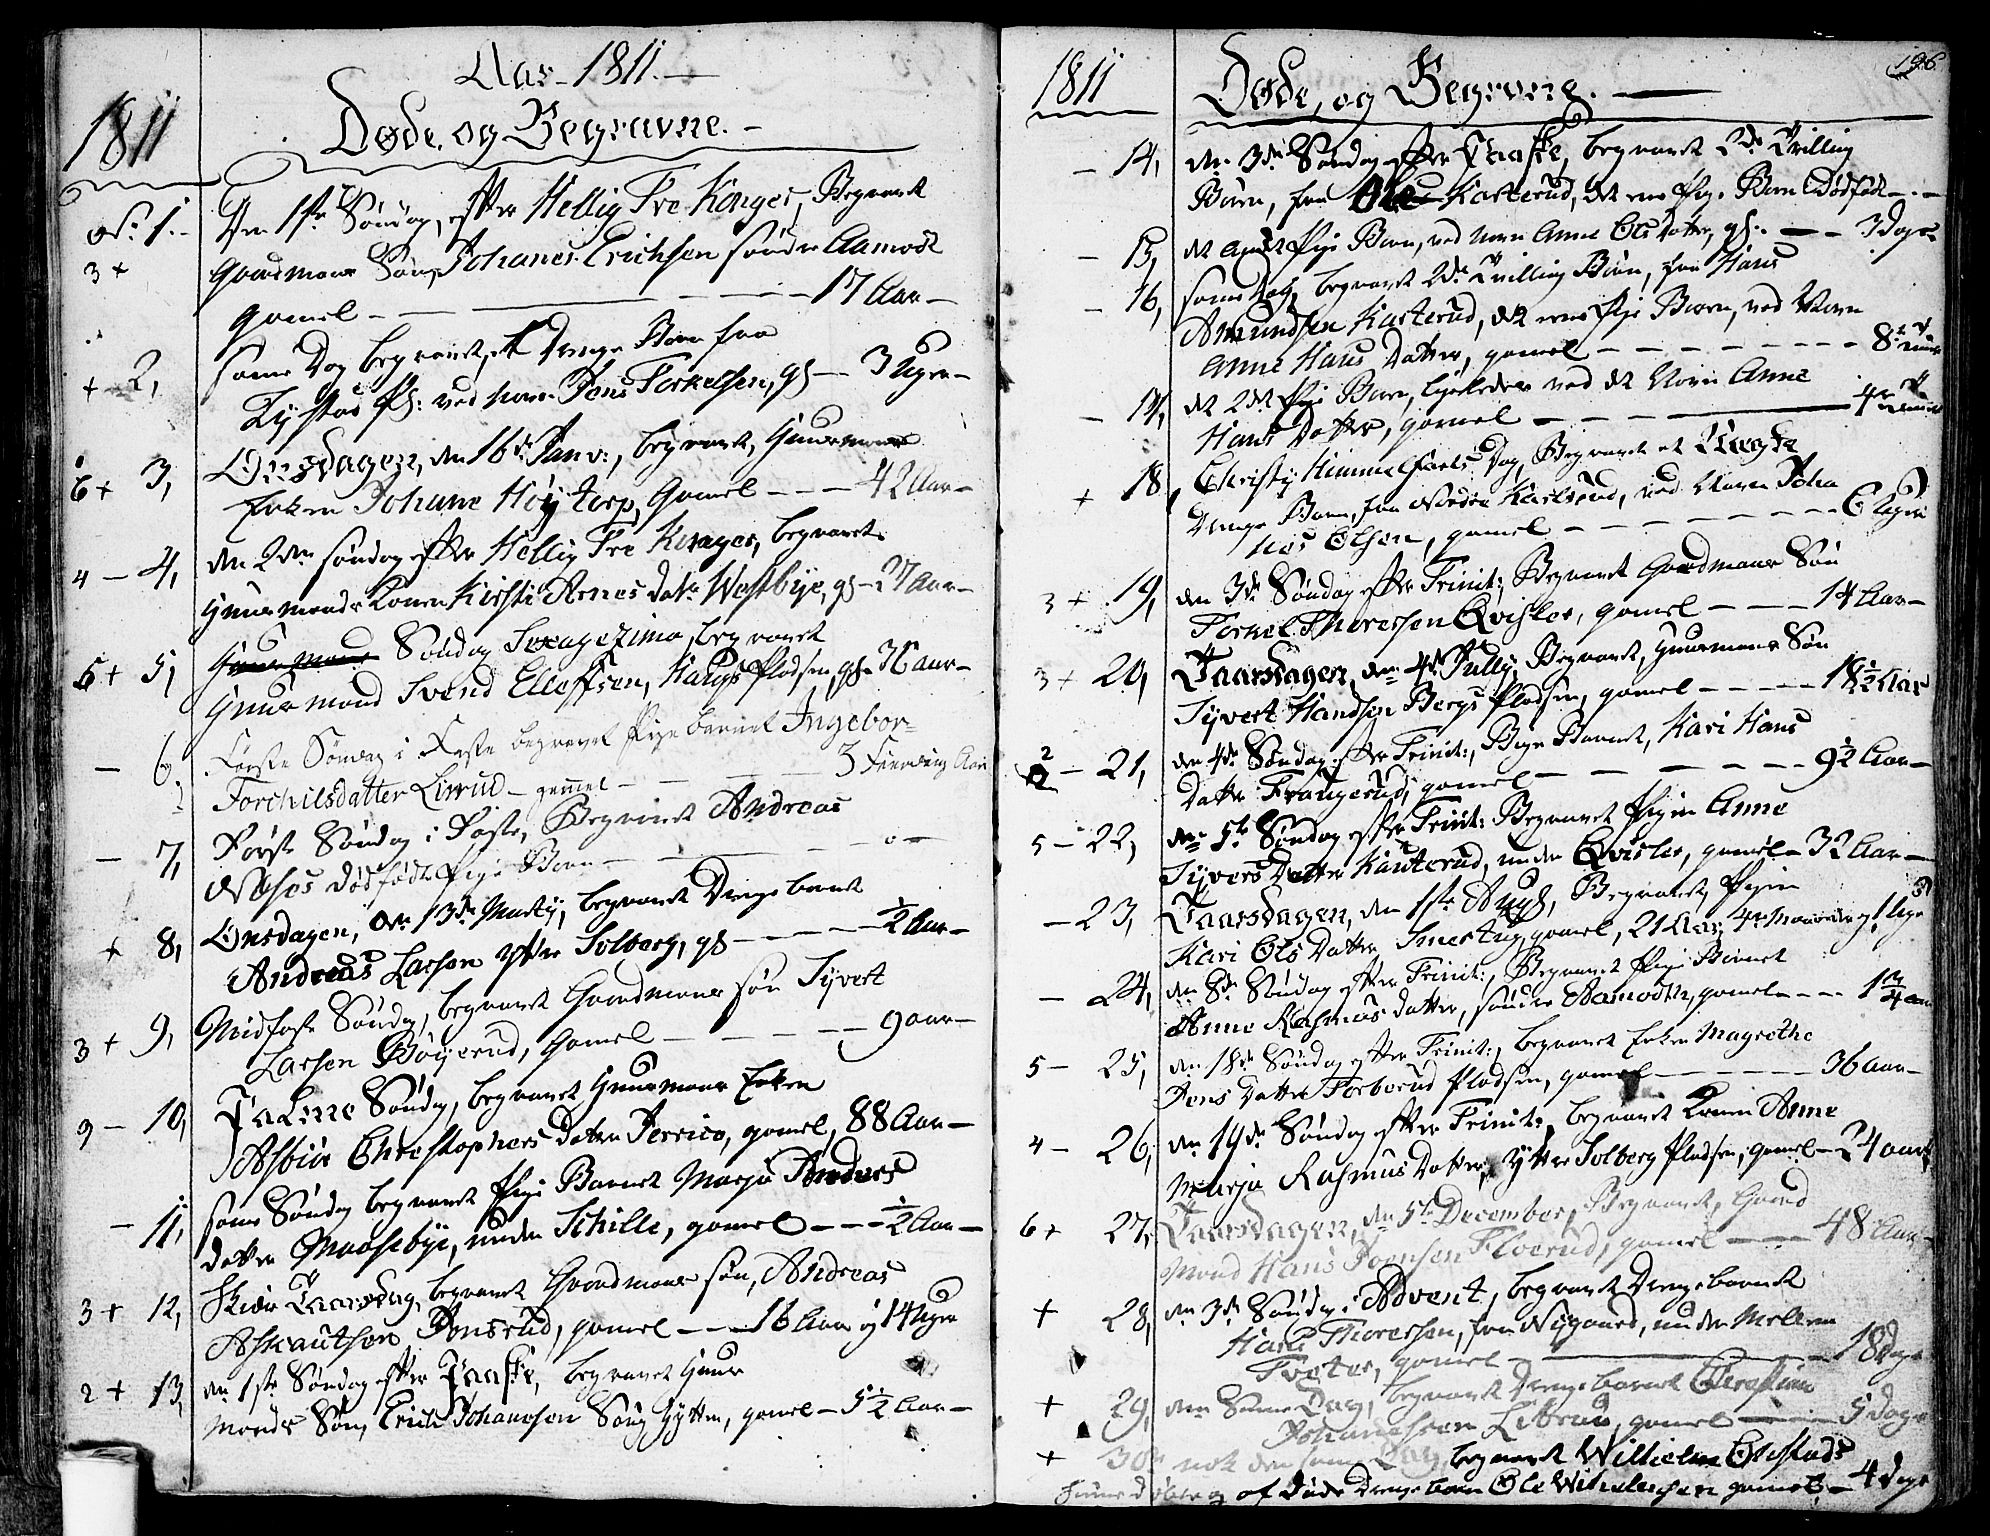 Aar 1811.
1811
Døde, og Begravne.
No. 1. Den 1ste Søndag efter Hellig Tre Konger, Begravet
3 + Gaardmans Søn, Johanes Erichsen søndre Aamodt
gamel - 17 Aar
+ 2, same Dag begravet, et Drenge Barn fra
ved navn Jens Torkelsen, gl - 3 Uger
6 + 3, Onsdagen, den 16de Janv:, begravet, Huusmans
Enken Johane Høytorp, gamel - 42 Aar
4 - 4, den 2den søndag efter Hellig Tre Konger, begravet
Huusmands Konen Kirsti Arnes datr Westbye, gl - 27 Aar
6 + 5, Søndag Sexagezima, begravet
Huusmand Svend Elleffsen, Haugs Pladsen, gl
- 6. Første Søndag i Faste begravet Pige barnet Ingebor-
Torchilsdatter Lirrud - gamel - 3 Fierding Aar
- 7, Første Søndag i Faste, Begravet Andreas
dødfødt Pige Barn
+ 8, Onsdagen, den 13de Martij, begravet Drenge barnet
Andreas Larsen yttre Solberg, gl - 1/2 Aar
3 + 9, Midfaste Søndag, begravet Gaardmans søn Syvert
Larsen Bøyerud, Gamel - 9 aar
9 - 10, Palme Søndag, begravet Huusmans Enken
Asbiør Christophers datter Jerrico, gamel, 88 Aar
- 11, same Søndag begravet Pige Barnet Marja Anders
datter Moosebye, under Schille, gamel - 1/2 Aar
3 + 12, Skiær Taarsdag, begravet Gaardmans søn, Andreas
Asgautsøn Jonsrud, gamel - 16 Aar og 14 Uger
2 + 13, den 1ste Søndag efter Paaske, begravet Huus
mands Søn, Erich Johannesen Haug Hytten, gamel - 5 1/2 Aar
196
1811 Døde, og Begravne.
- 14, den 3die Søndag efter Paaske, begravet 2de Tvilling
Børn, fra Ole Kasterud, det ene Pige Barn Dødfødt
- 15, det andet Pige Barn, ved navn Anne Ols Datter, gl: - 3 Dage
- 16, same Dag, begravet 2de Tvilling Børn, fra Hans
Amundsen Kasterud, det ene Pige Barn, ved Navn
Anne Hans Datter, gamel - 8
- 17, det 2det Pige Barn, ligeledes ved det Navn Anne
Hans Datter, gamel - 4
+ 18, Christi Himmelfarts Dag, Begravet et
Drenge Barn, fra Nordre Karlsrud, ved Navn Joha
nes Olsen, gamel - 6 Uger
3 + 19, den 3de Søndag efter Trinit:, Begravet Gaardmans Søn
Torkel Thoressen Qvisler, gamel - 14 Aar
3 + 20, Taarsdagen, den 4de Jully, Begravet, Huusmans Søn
Syvert Handsen Bergs Pladsen, gamel - 18 1/2 Aar
2 - 21, den 4de Søndag efter Trinit:, Pige Barnet, Kari Hans
Datter Frougerud, gamel - 9 1/2 Aar
5 - 22, den 5te Søndag efter Trinit: Begravet Pigen Anne
Syvers Datter Kasterud, under Qvisler, gamel - 32 Aar
- 23, Taarsdagen, den 1ste Aug:, Begravet, Pigen
Kari Ols Datter Smestug, gamel, 21 Aar, 4re Maaneder og 1 Uge
- 24, den 8de Søndag efter Trinit:, Begravet Pige Barnet
Anne Rasmus datter, søndre Aamodt, gamel - 1 3/4 aar
5 - 25, den 18de Søndag efter Trinit:, begravet Enken Magrethe
Jens Datter Torberud Pladsen, gamel - 36 aar
4 - 26, den 19de Søndag efter Trinit:, begravet Konen Anne
Marja Rasmus Datter, yttre Solberg Pladsen, gamel - 24 aar
6 + 27, Taarsdagen, den 5te December, Begravet, Gaard
Mand Hans Joensen Floerud, gamel - 48 Aar
+ 28, den 3de Søndag i Advent, begravet Drenge barnet
Hans Thoressen, fra Nygaard, under Mellem
Tveter, gamel - 18 Dage
+ 29, den Same Dag, begravet Drenge barnet Christian
Johannesen Litterud, gamel - 5 Dage
+ 30. nok den same Dag, begravet Willielm Olstads
af Døde Drenge barn Ole Wilhelmsen gamel - 4 dage